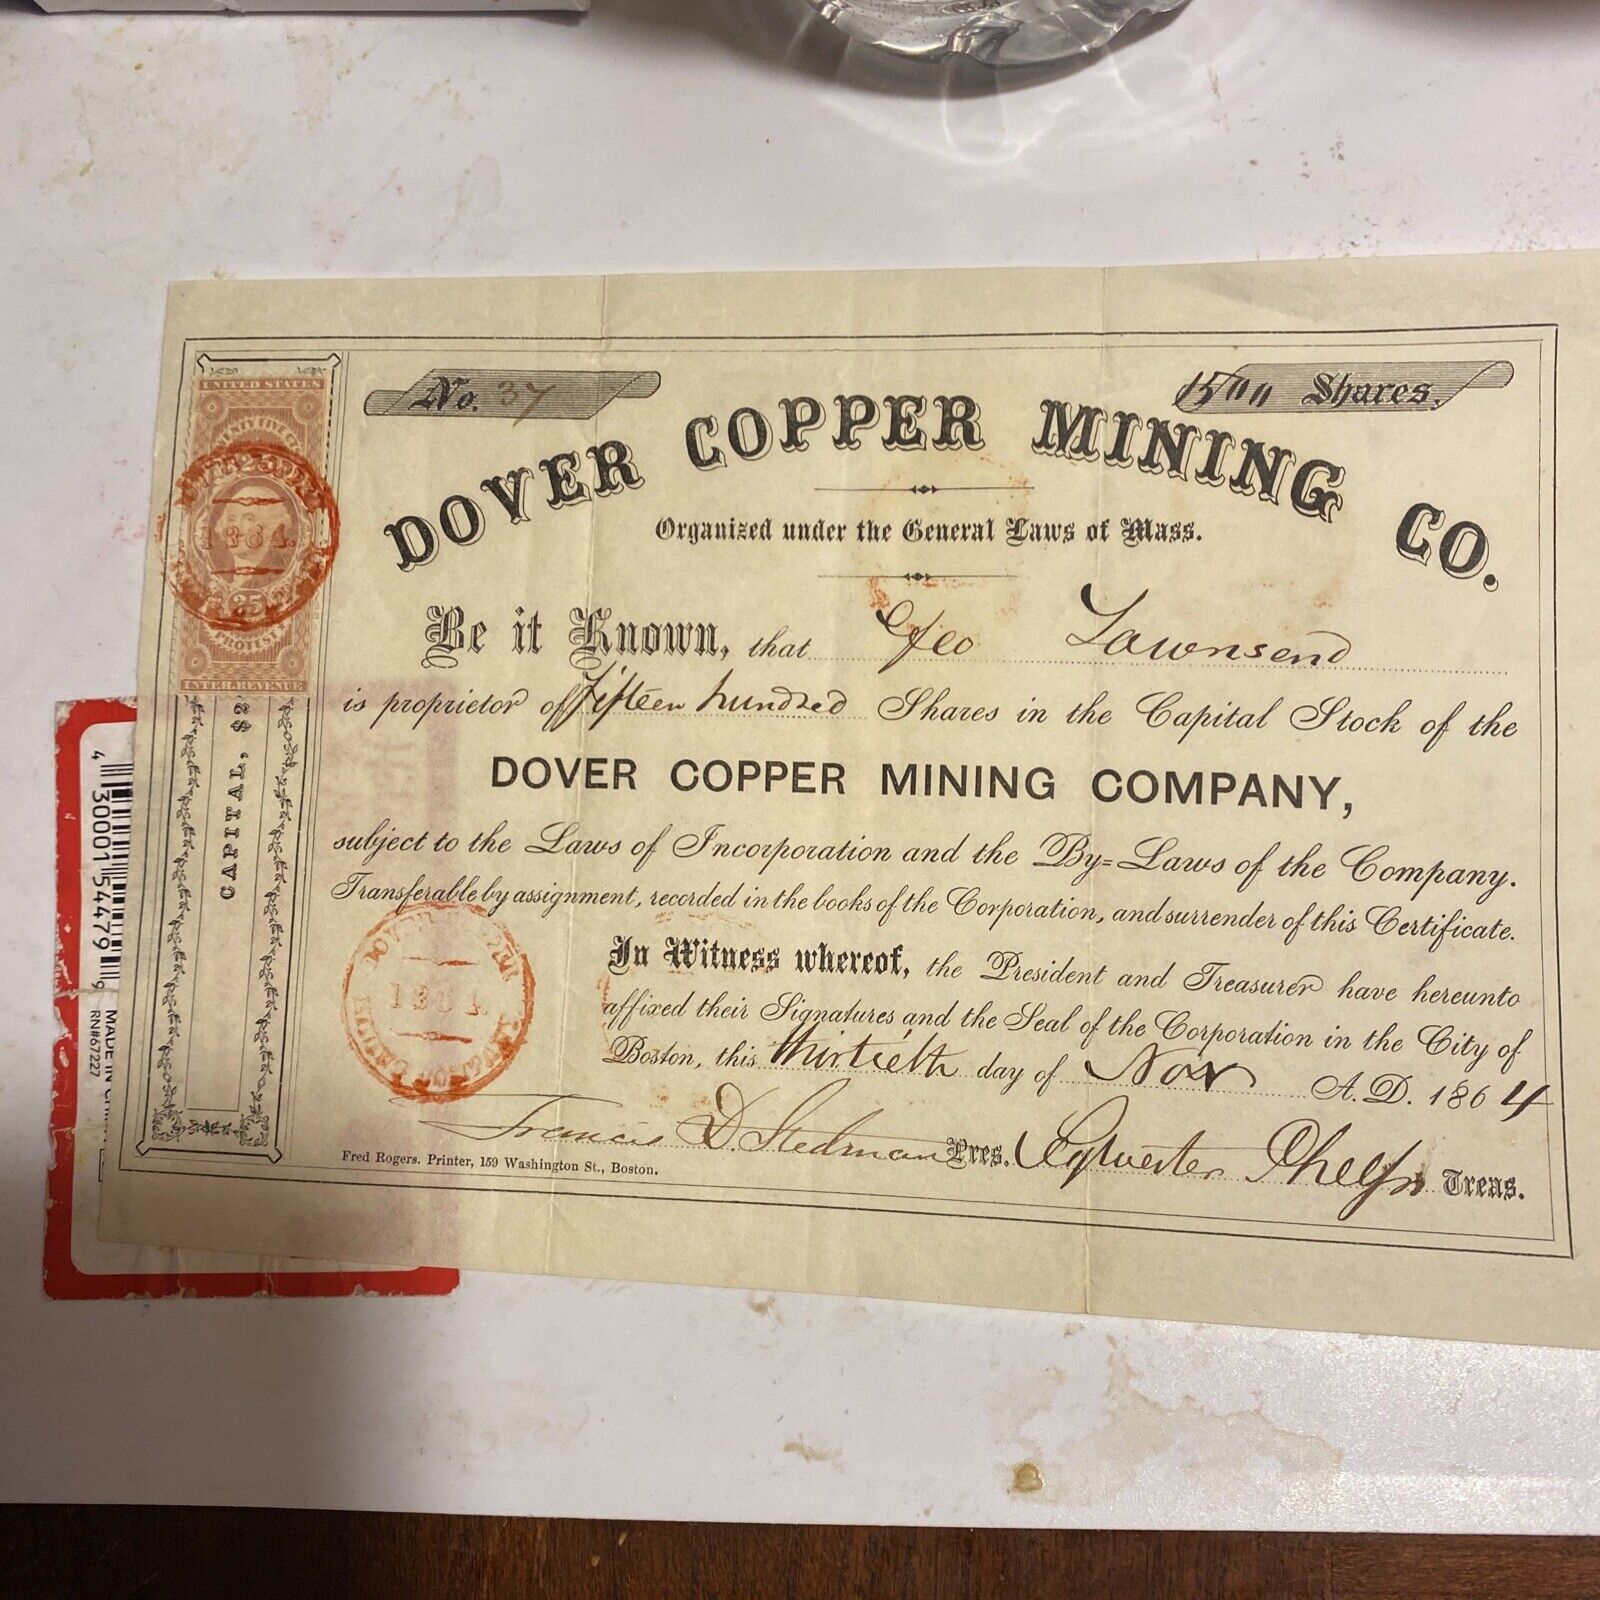 No. 37
1500 Shares.
DOVER COPPER MINING CO.
Organized under the General Laws of Mass.
Be it Known, that Geo Townsend
is proprietor of fifteen hundred Shares in the Capital Stock of the
DOVER COPPER MINING COMPANY,
subject to the Laws of Incorporation and the By=Laws of the Company.
Transferable by assignment, recorded in the books of the Corporation, and surrender of this Certificate.
In Witness whereof, the President and Treasurer have hereunto
affixed their Signatures and the Seal of the Corporation in the City of
Boston, this thirtieth day of Nov A.D. 1864
Francis D. Stedman Pres. Sylvester Phelps Treas.
Fred Rogers. Printer, 159 Washington St., Boston.
UNITED STATES
25
1864.
25
PROTEST
INTER. REVENUE
CAPITAL, $2
DOVER COPPER
1864.
MINING
4 30001 54479 9
MADE IN CHIN
RN#67227